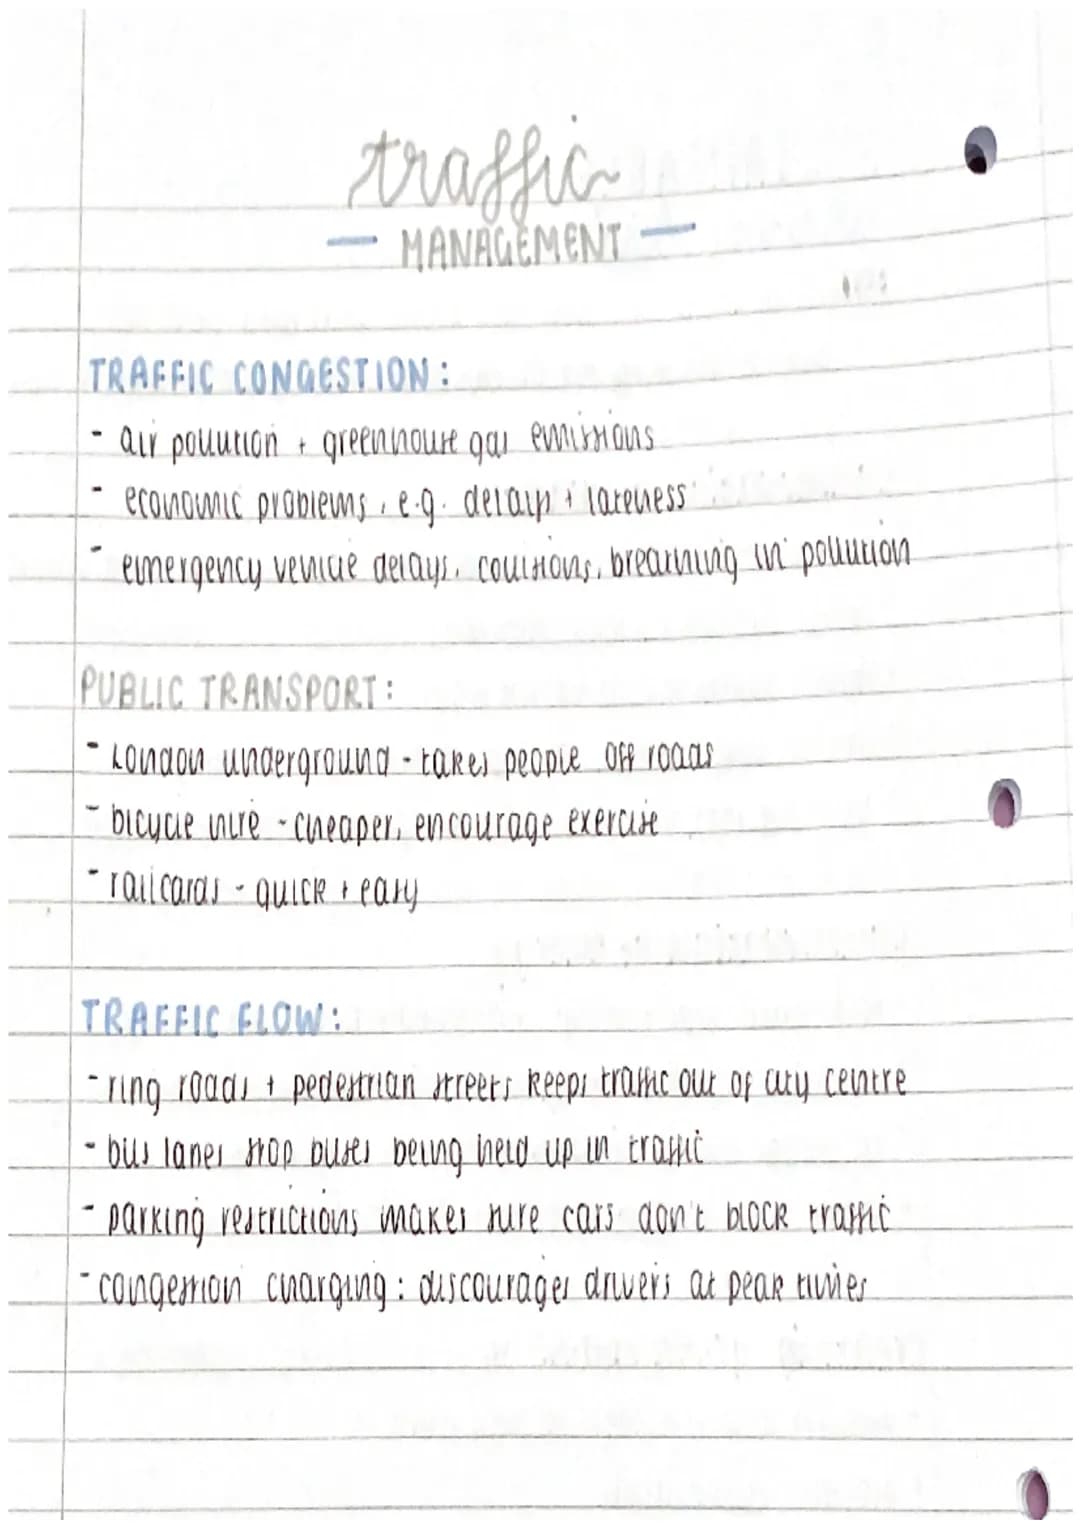 traffic
— MANAGEMENT —
TRAFFIC CONGESTION:
- air pollution + greenhouse gas emissions
- economic problems, e.g. delays + lateness
- emergency vehicle delays, collisions, breathing in pollution
PUBLIC TRANSPORT:
- London underground - takes people off roads
- bicycle hire - cheaper, encourage exercise
- railcards - quick + easy
TRAFFIC FLOW:
- ring roads + pedestrian streets keeps traffic out of city centre
- bus lanes stop buses being held up in traffic
- parking restrictions makes sure cars don't block traffic
- congestion charging: discourages drivers at peak times